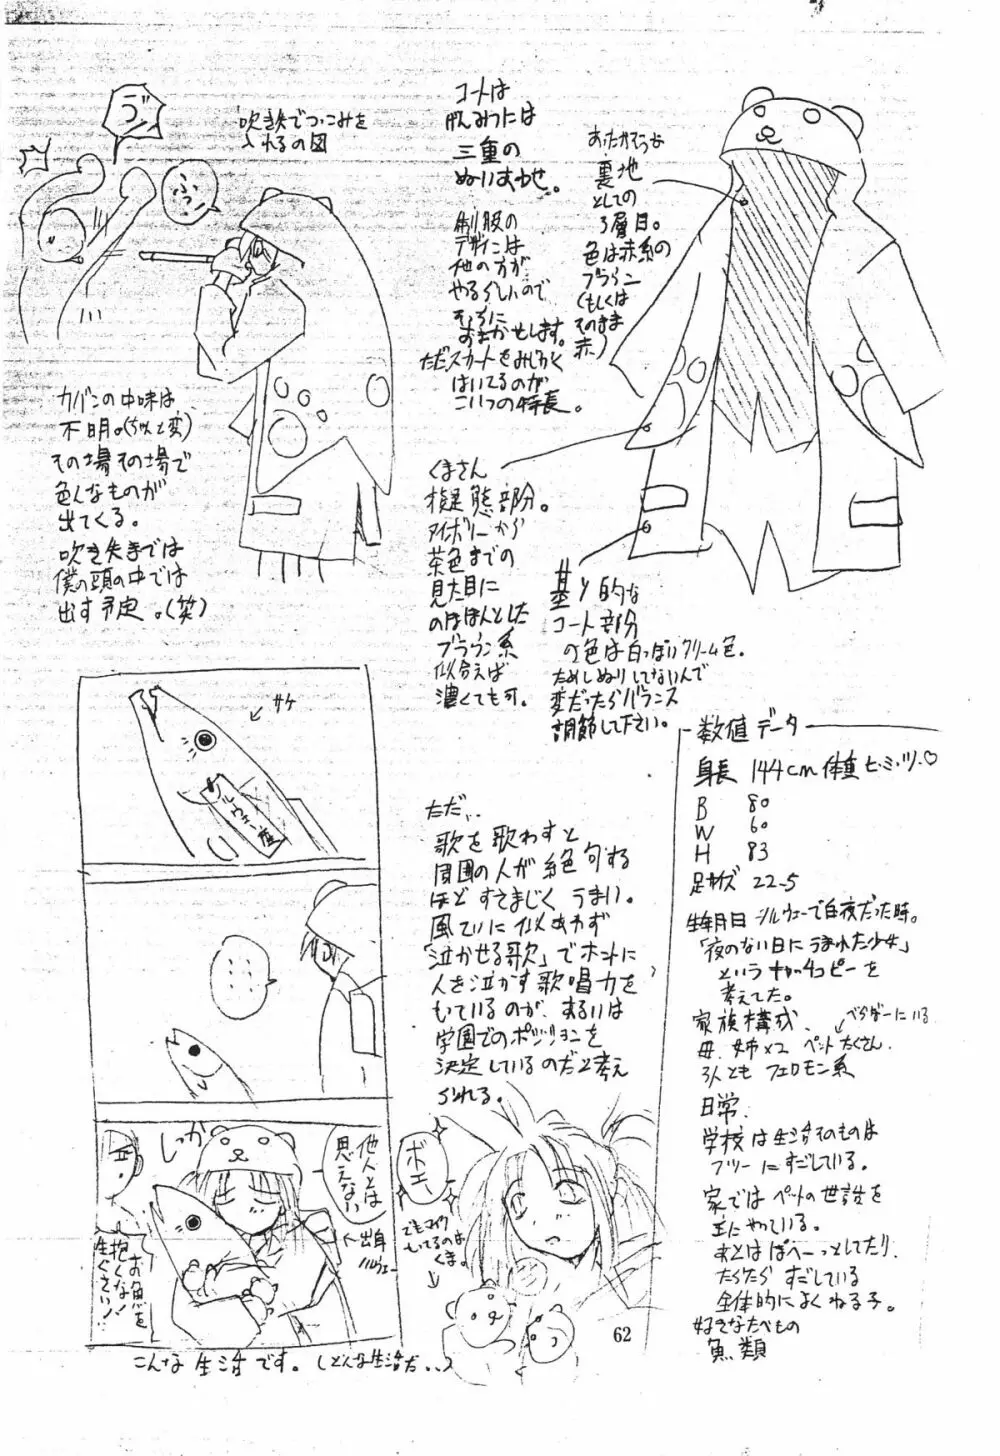 コートは
げんみつには
三重の
ぬいあわせ。
制服の
デザインは
他の方が
やるらしいので
そちらに
おまかせします。
ただスカートをみじかく
はいてるのが
こいつの特長。
あったかそうな
裏地
としての
3層目。
色は赤系の
ブラウン
(もしくは
そのまま
赤)
吹き矢でつっこみを
入れるの図
ふっ!
カバンの中味は
不明。(ちょっと変)
その場その場で
色んなものが
出てくる。
吹き矢までは
僕の頭の中では
出す予定。(笑)
くまさん
擬態部分。
アイボリーから
茶色までの
見た目に
のほほんとした
ブラウン系
似合えば
濃くても可。
基本的な
コート部分
の色は白っぽいクリーム色。
ためしぬりしてないんで
変だったらバランス
調節して下さい。
サケ
ノルウェー産
しっか
他人とは
思えない
出身
ノルウェー
お魚を
抱くな!
生ぐさい!
こんな生活です。(どんな生活だ..)
ただ..
歌を歌わすと
周囲の人が絶句する
ほどすさまじくうまい。
風ていに似あわず
「泣かせる歌」でホントに
人を泣かす歌唱力を
もっているのが、あるいは
学園でのポジションを
決定しているのだと考え
られる。
ボエー
でもマイク
もってるのは
くま。
数値データ
身長 144cm 体重 ヒ・ミ・ツ♡
B 80
W 60
H 83
足サイズ 22.5
生年月日 ノルウェーで白夜だった時。
「夜のない日にうまれた少女」
というキャッチコピーを
考えてた。
家族構成、
べらぼーにいる
母、姉×2 ペットたくさん
3人とも フェロモン系
日常、
学校は生活そのものは
フツーにすごしている。
家ではペットの世話を
主にやっている。
あとはぽへーっとしてたり、
だらだらすごしている
全体的によくねる子。
好きなたべもの
魚類
62